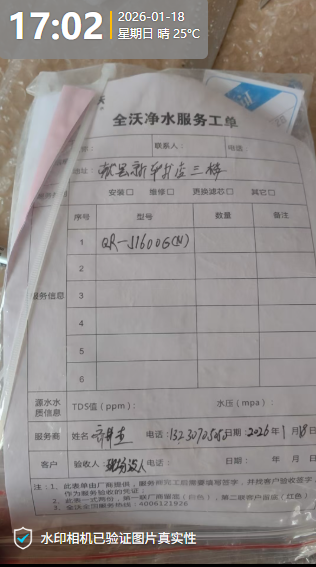 17:02
2026-01-18
星期日 晴 25℃
沃
全沃净水服务工单
联系人： 电话
地址： 新 三楼
安装□ 维修□ 更换滤芯□ 其它□
序号 型号 数量 备注
1 QR-J1600G(N)
2
3
服务信息
4
5
6
源水水质信息 TDS值（ppm）： 水压（mpa）：
服务商 姓名 电话： 日期：2026年1月18日
客户 验收人 电话： 日期： 年 月 日
注：1、此表单由厂商提供，服务师完工后需填写签字，并找客户验收签字，
作为服务验收的凭证；
2、此表一式两份，第一联厂商留底（白色），第二联客户留底（红色）
3、全沃全国服务热线：4006121926
水印相机已验证图片真实性